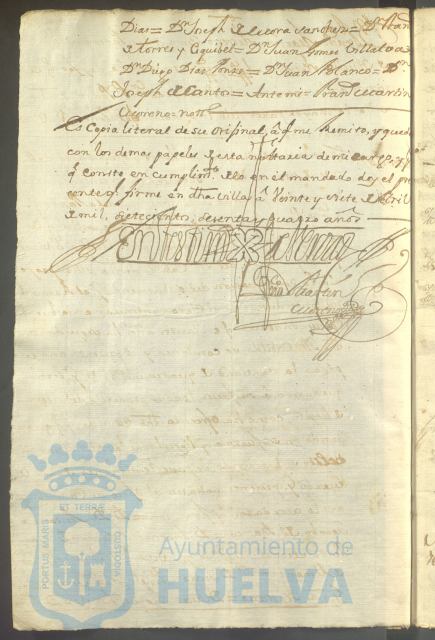 Dias = Dn Joseph de Mora Sanchez = Dn
de torres y Coquibel = Dn Juan Gomes Villalva
Dn Diego Dias = Dn Juan Blanco = Dn
Joseph de Cantos = Ante mi = Martin
Moreno = nott
Es Copia literal de su original, a q.e me Remito, y queda
con los demas papeles de esta nottaria de mi cargo, y p.a
q.e conste en cumplim.to de lo en el mandado doy el pre
sente q.e firme en dha villa, a Veinte y siete de Abril
de mil, setecientos, sesenta y quatro años
En testimo de Verdad
Martin
Moreno
PORTUS MARIS
ET TERRÆ
CUSTODIA
Ayuntamiento de
HUELVA